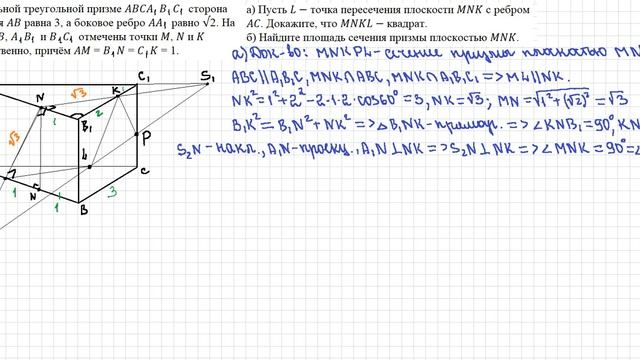 ьной треугольной призме ABCA₁B₁C₁ сторона
я AB равна 3, а боковое ребро AA₁ равно √2. На
B, A₁B₁ и B₁C₁ отмечены точки M, N и K
твенно, причём AM = B₁N = C₁K = 1.
а) Пусть L − точка пересечения плоскости MNK с ребром
AC. Докажите, что MNKL − квадрат.
б) Найдите площадь сечения призмы плоскостью MNK.
а) Док-во: MNKPL - сечение призмы плоскостью MN
ABC||A₁B₁C₁, MNK∩ABC, MNK∩A₁B₁C₁ => ML||NK.
NK²=1²+2²-2·1·2·cos60°=3, NK=√3; MN=√(1²+(√2)²)=√3
B₁K²=B₁N²+NK² => ΔB₁NK-прямоуг. => ∠KNB₁=90°, KN
S₂N-накл., A₁N-проекц., A₁N⊥NK => S₂N⊥NK => ∠MNK=90°=∠
C₁
S₁
K
N
√3
2
1
B₁
P
√3
L
C
N
1
1
3
B